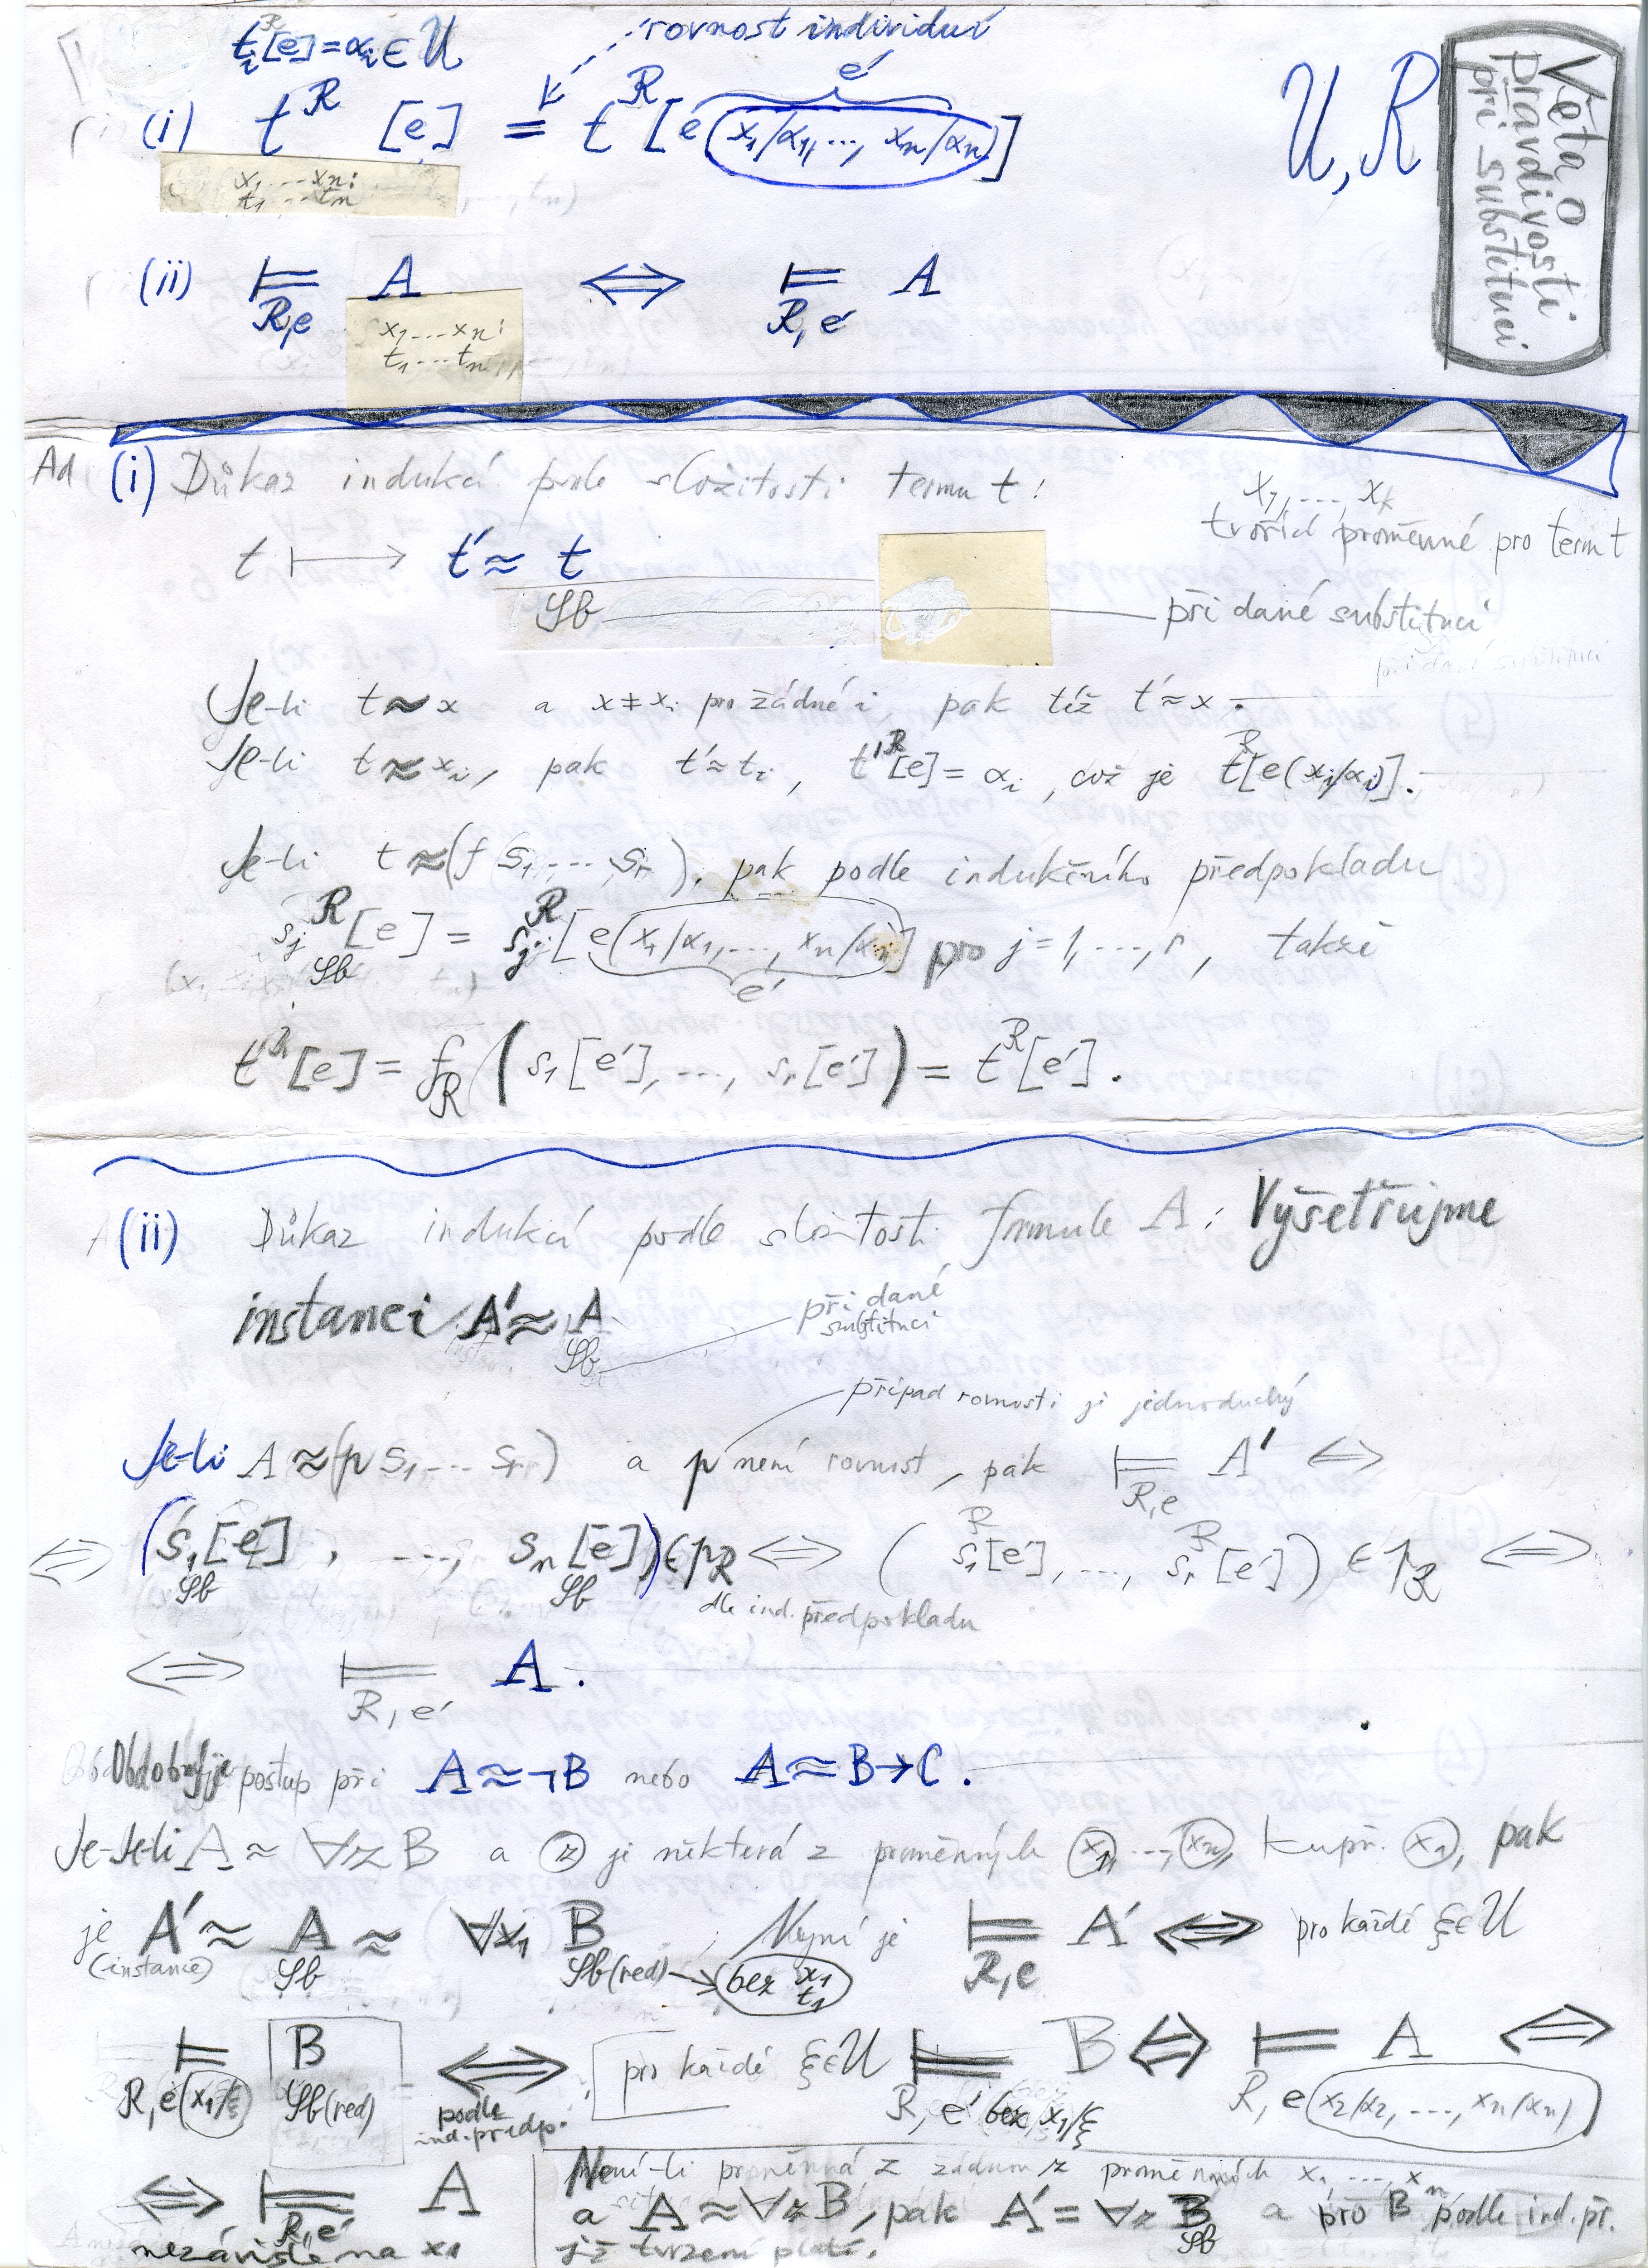 tᵢᴿ[e]=αᵢ∈U
rovnost individuí
(i) tᴿ [e] = tᴿ[e(x₁/α₁,..., xₙ/αₙ)]
e′
x₁...xₙ:
t₁...tₙ
U, R
Věta o
pravdivosti
při substituci
(ii) ⊨ A ⇔ ⊨ A
R,e R,e′
x₁...xₙ:
t₁...tₙ
Ad (i) Důkaz indukcí podle složitosti termu t:
x₁,... xₖ
tvořící proměnné pro term t
t ⟼ t′≈ t
Sb při dané substituci
Je-li t≈x a x≠xᵢ pro žádné i, pak též t′≈x.
Je-li t≈xᵢ, pak t′≈tᵢ, t′ᴿ[e]=αᵢ, což je tᴿ[e(xᵢ/αᵢ)].
Je-li t≈(f s₁,... sᵣ), pak podle indukčního předpokladu
sⱼᴿ[e] = sⱼᴿ[e(x₁/α₁,..., xₙ/αₙ)] pro j=1,...,r, takže
Sb e′
t′ᴿ[e] = f_R (s₁[e′],..., sᵣ[e′]) = tᴿ[e′].
(ii) Důkaz indukcí podle složitosti formule A: Vyšetřujme
instanci A′≈ A
Sb při dané
substituci
případ rovnosti je jednoduchý
Je-li A≈(p s₁... sᵣ) a p není rovnost, pak ⊨ A′ ⇔
R,e
⇔ (s₁[e], ..., sₙ[e])∈p_R ⇔ (s₁ᴿ[e′],..., sᵣᴿ[e′]) ∈ p_R ⇔
Sb Sb dle ind. předpokladu
⇔ ⊨ A.
R, e′
Obdobný je postup při A≈¬B nebo A≈B→C.
Je-li A≈ ∀z B a z je některá z proměnných x₁,...,xₙ, kupř. x₁, pak
je A′≈ A ≈ ∀x₁ B ; Nyní je ⊨ A′ ⇔ pro každé ξ∈U
(instance) Sb Sb(red) → bez x₁ t₁ R,e
⊨ B ⇔ pro každé ξ∈U ⊨ B ⇔ ⊨ A ⇔
R, e(x₁/ξ) Sb(red) podle ind. předp. R, e′ bez x₁/ξ R, e(x₂/α₂,..., xₙ/αₙ)
⇔ ⊨ A
R,e′
nezávisle na x₁
Není-li proměnná z žádnou z proměnných x₁,...,xₙ
a A≈∀z B, pak A′=∀z B a pro B podle ind. př.
Sb
již tvrzení platí.